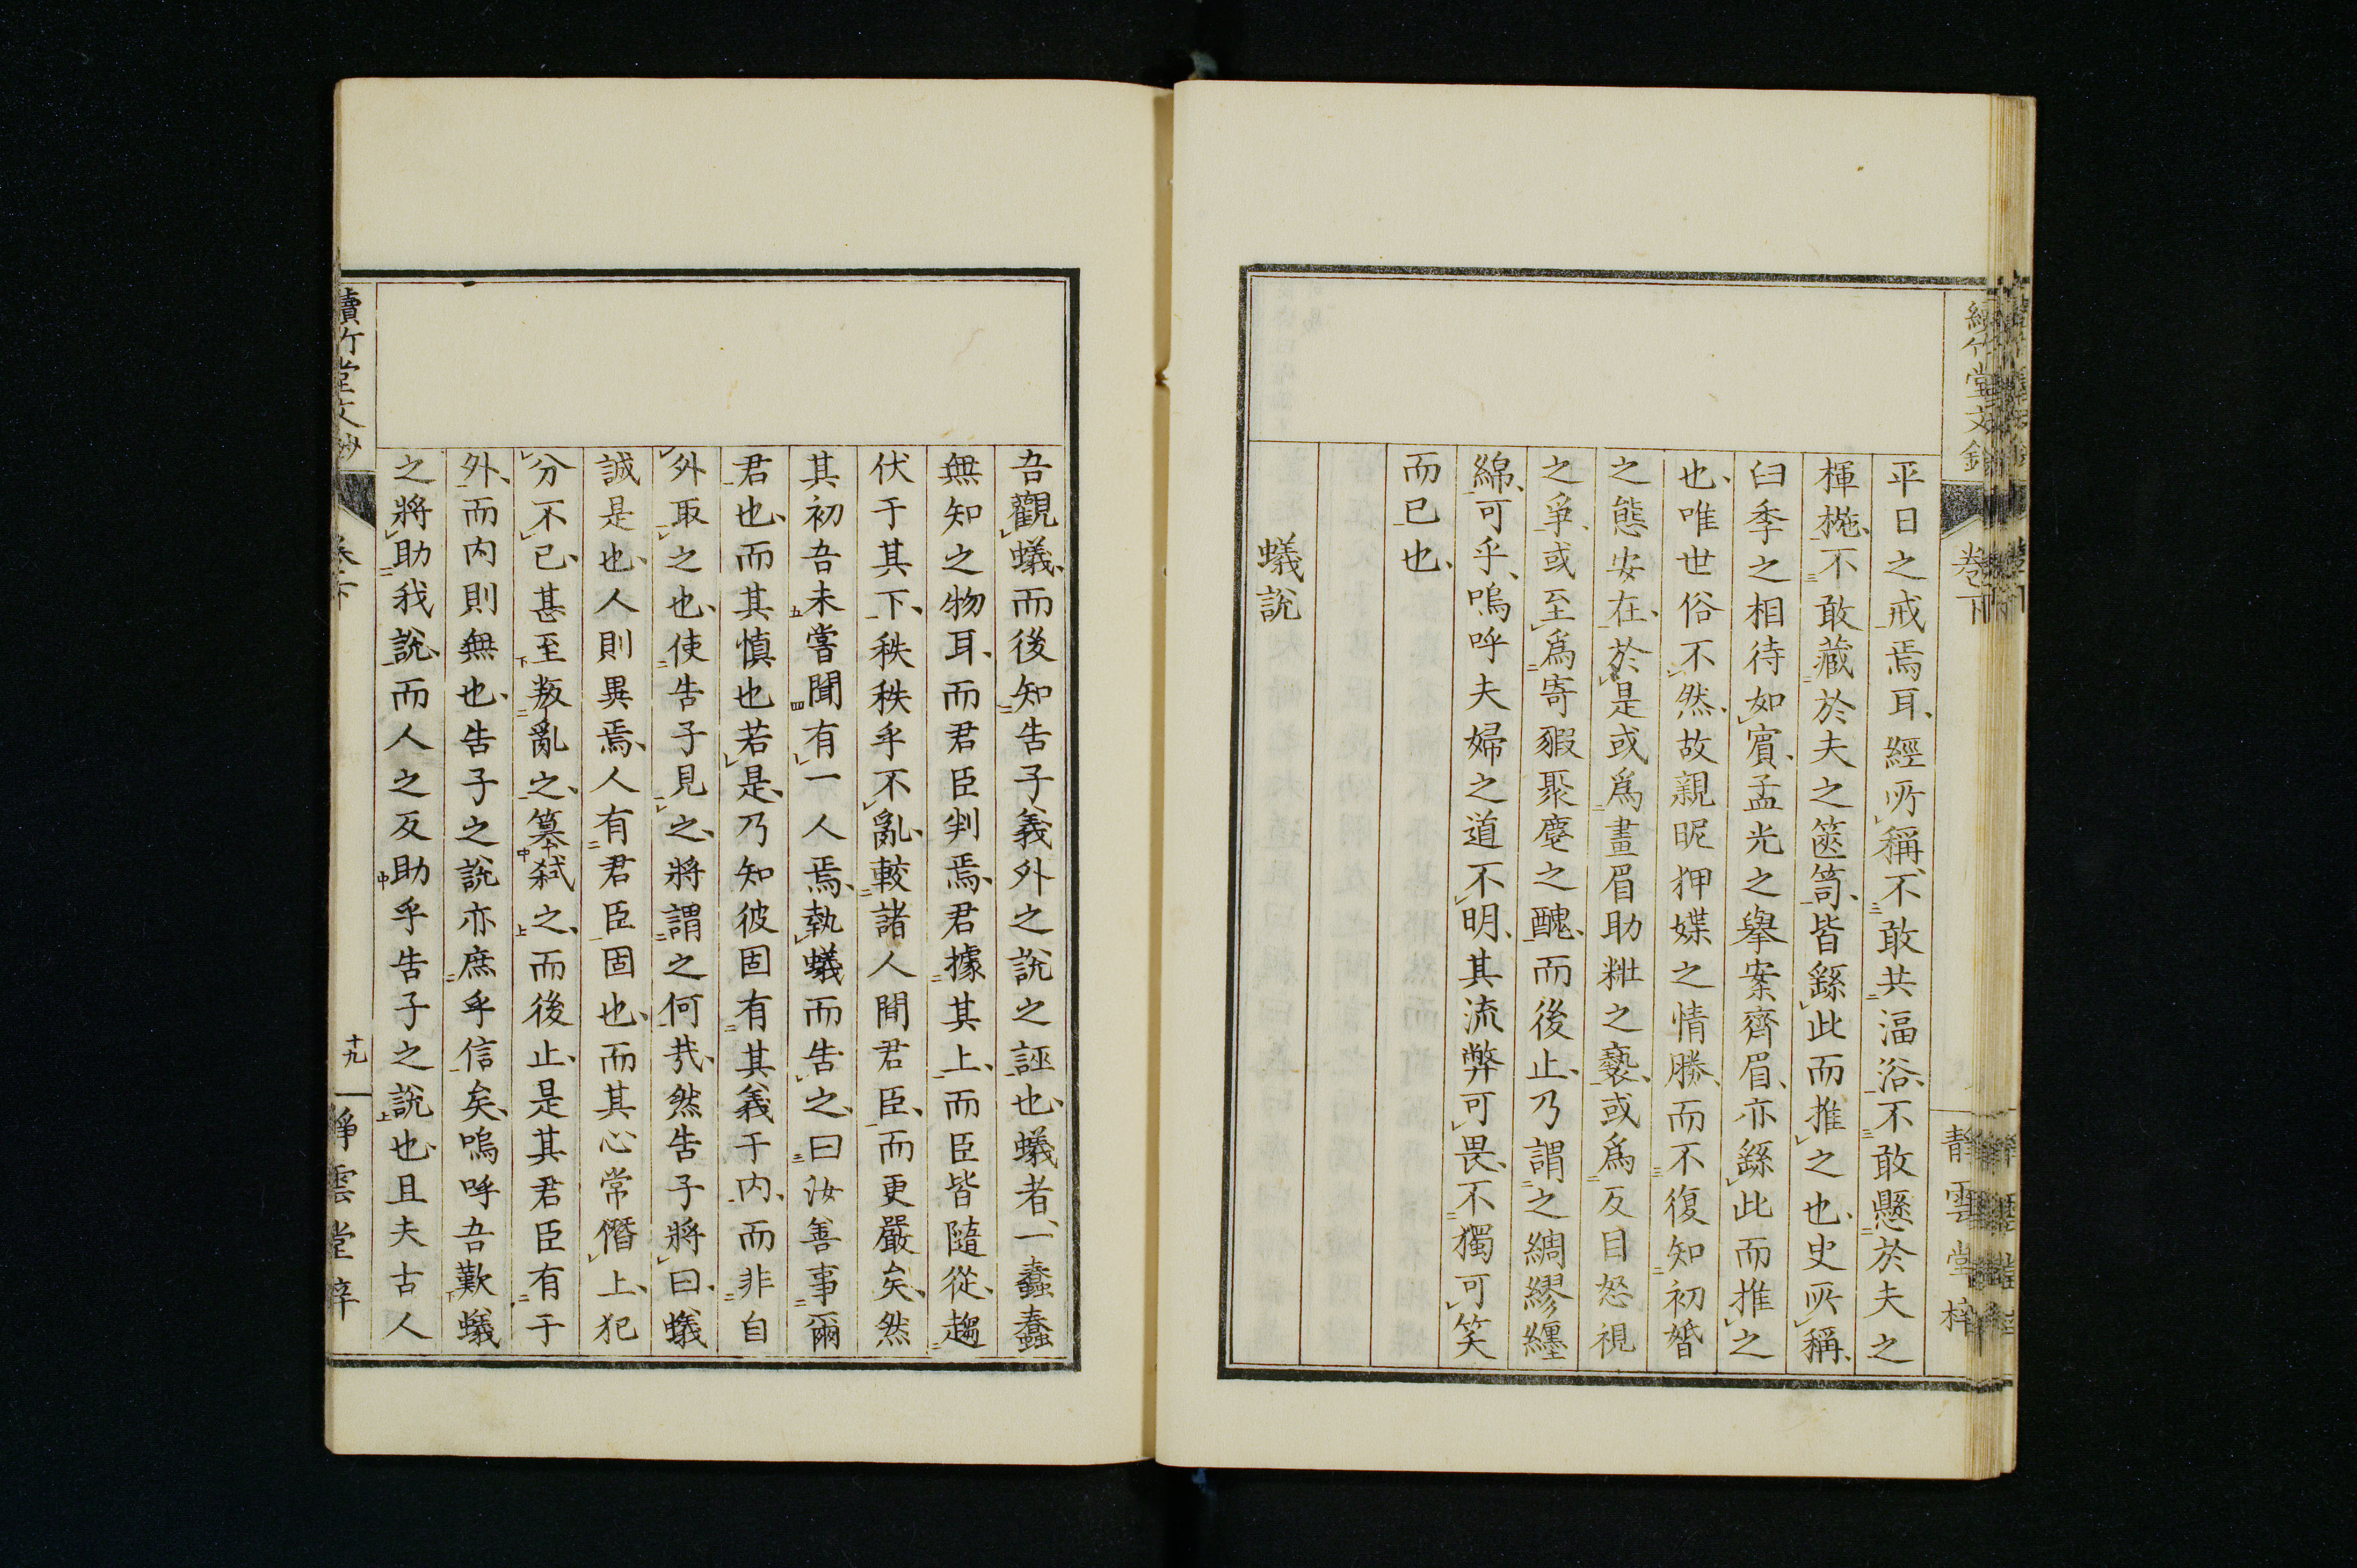 平日之戒焉耳、經所稱、不敢共湢浴、不敢懸於夫之
楎椸、不敢藏於夫之篋笥、皆繇此而推之也、史所稱、
臼季之相待如賓、孟光之舉案齊眉、亦繇此而推之
也、唯世俗不然、故親昵狎媟之情勝、而不復知初婚
之態安在、於是或爲畫眉助粧之褻、或爲反目怒視
之爭、或至爲寄豭聚麀之醜、而後止、乃謂之綢繆纏
綿、可乎、嗚呼夫婦之道不明、其流弊可畏、不獨可笑
而已也、
蟻說
卷下
靜雲堂梓
吾觀蟻、而後知告子義外之說之誣也、蟻者、一蠢蠢
無知之物耳、而君臣判焉、君據其上、而臣皆隨從、趨
伏于其下、秩秩乎不亂、較諸人間君臣、而更嚴矣、然
其初吾未嘗聞有一人焉、執蟻而告之、曰汝善事爾
君也、而其慎也若是、乃知彼固有其義于内、而非自
外取之也、使告子見之、將謂之何哉、然告子將曰、蟻
誠是也、人則異焉、人有君臣固也、而其心常僭上、犯
分不已、甚至叛亂之、篡弑之、而後止、是其君臣有于
外、而内則無也、告子之說亦庶乎信矣、嗚呼吾歎蟻
之將助我說、而人之反助乎告子之說也、且夫古人
續竹堂文鈔
卷下
十九
靜雲堂梓